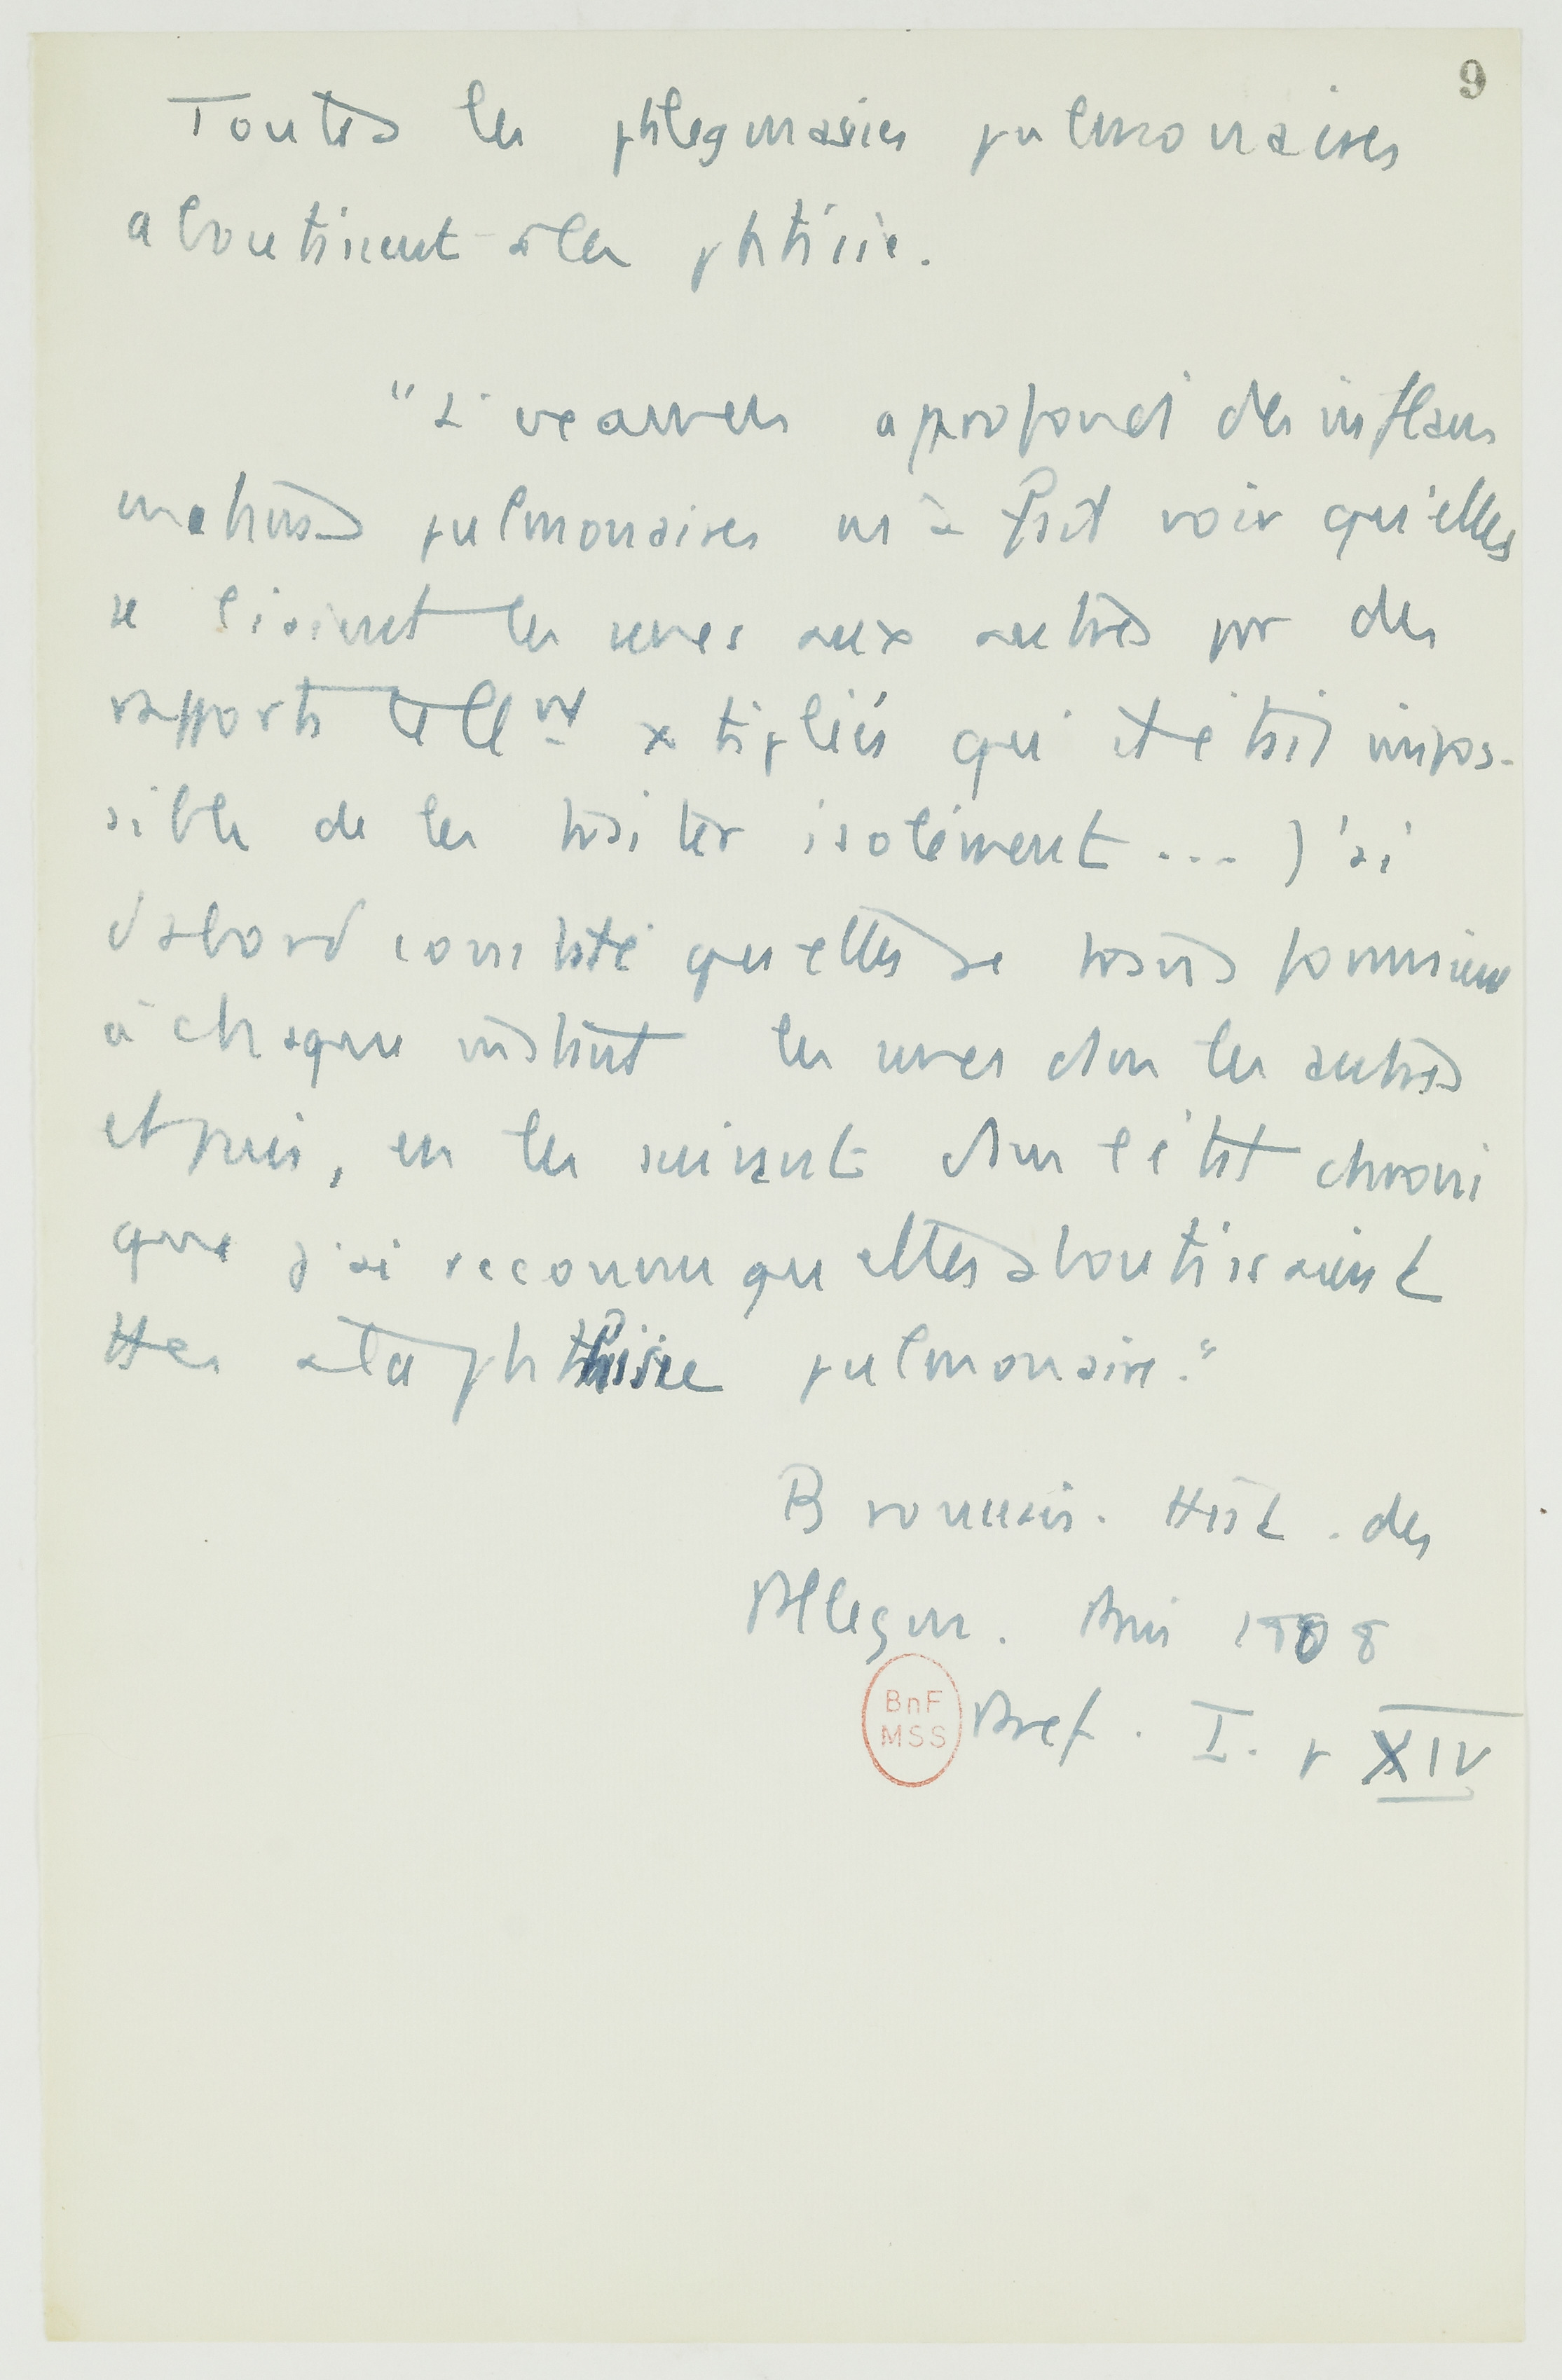 9
Toutes les phlegmasies pulmonaires
aboutissent à la phtisie.
"L'examen approfondi des inflam
mations pulmonaires m'a fait voir qu'elles
se lisaient les unes aux autres par des
rapports tellmt xtipliés qu'il était impos-
sible de les traiter isolément ... J'ai
d'abord constaté qu'elles se transformaient
à chaque instant les unes dans les autres
et puis, en les suivant dans l'état chroni
que j'ai reconnu qu'elles aboutissaient
ttes à la phthisie pulmonaire."
Broussais. Hist. des
Phlegm. Paris 1808
BnF
MSS
Pref. I. p XIV